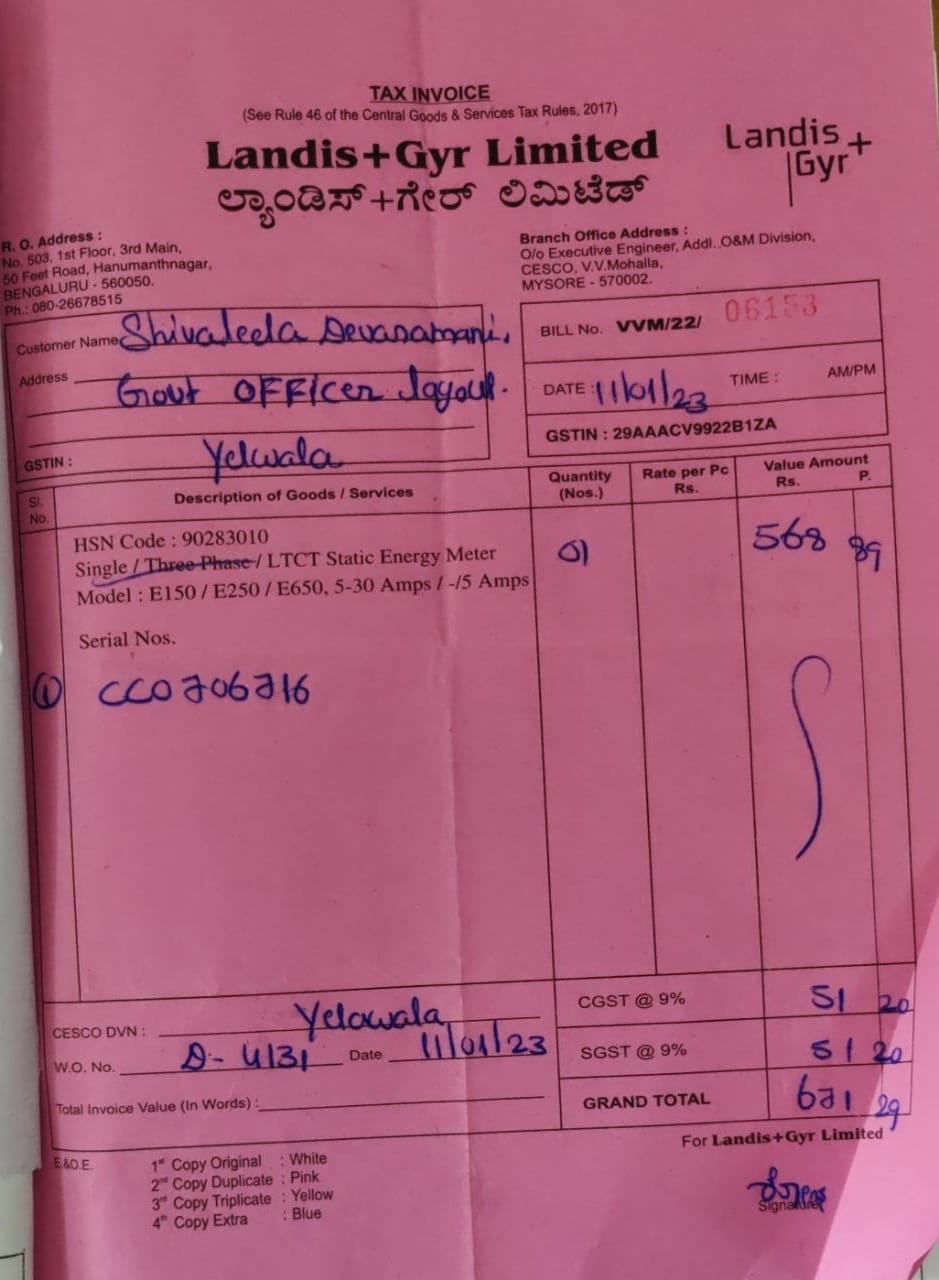 TAX INVOICE
(See Rule 46 of the Central Goods & Services Tax Rules, 2017)
Landis+Gyr Limited
ಲ್ಯಾಂಡಿಸ್+ಗೇರ್ ಲಿಮಿಟೆಡ್
Landis+
Gyr
R. O. Address :
No. 503, 1st Floor, 3rd Main,
50 Feet Road, Hanumanthnagar,
BENGALURU - 560050.
Ph.: 080-26678515
Branch Office Address :
O/o Executive Engineer, Addl. O&M Division,
CESCO, V.V.Mohalla,
MYSORE - 570002.
Customer Name Shivaleela Devasamani.
Address
Govt OFFicer layout.
GSTIN : Yelwala
BILL No. VVM/22/ 06153
DATE : 11/01/23 TIME : AM/PM
GSTIN : 29AAACV9922B1ZA
Sl. No. Description of Goods / Services Quantity (Nos.) Rate per Pc Rs. Value Amount Rs. P.
HSN Code : 90283010
Single / Three Phase / LTCT Static Energy Meter 01 568 89
Model : E150 / E250 / E650, 5-30 Amps / -/5 Amps
Serial Nos.
① CC0706716
CESCO DVN : Yelawala
W.O. No. D- 4131 Date 11/01/23
Total Invoice Value (In Words) :
CGST @ 9% 51 20
SGST @ 9% 51 20
GRAND TOTAL 671 29
For Landis+Gyr Limited
E.&O.E.
1st Copy Original : White
2nd Copy Duplicate : Pink
3rd Copy Triplicate : Yellow
4th Copy Extra : Blue
Signature